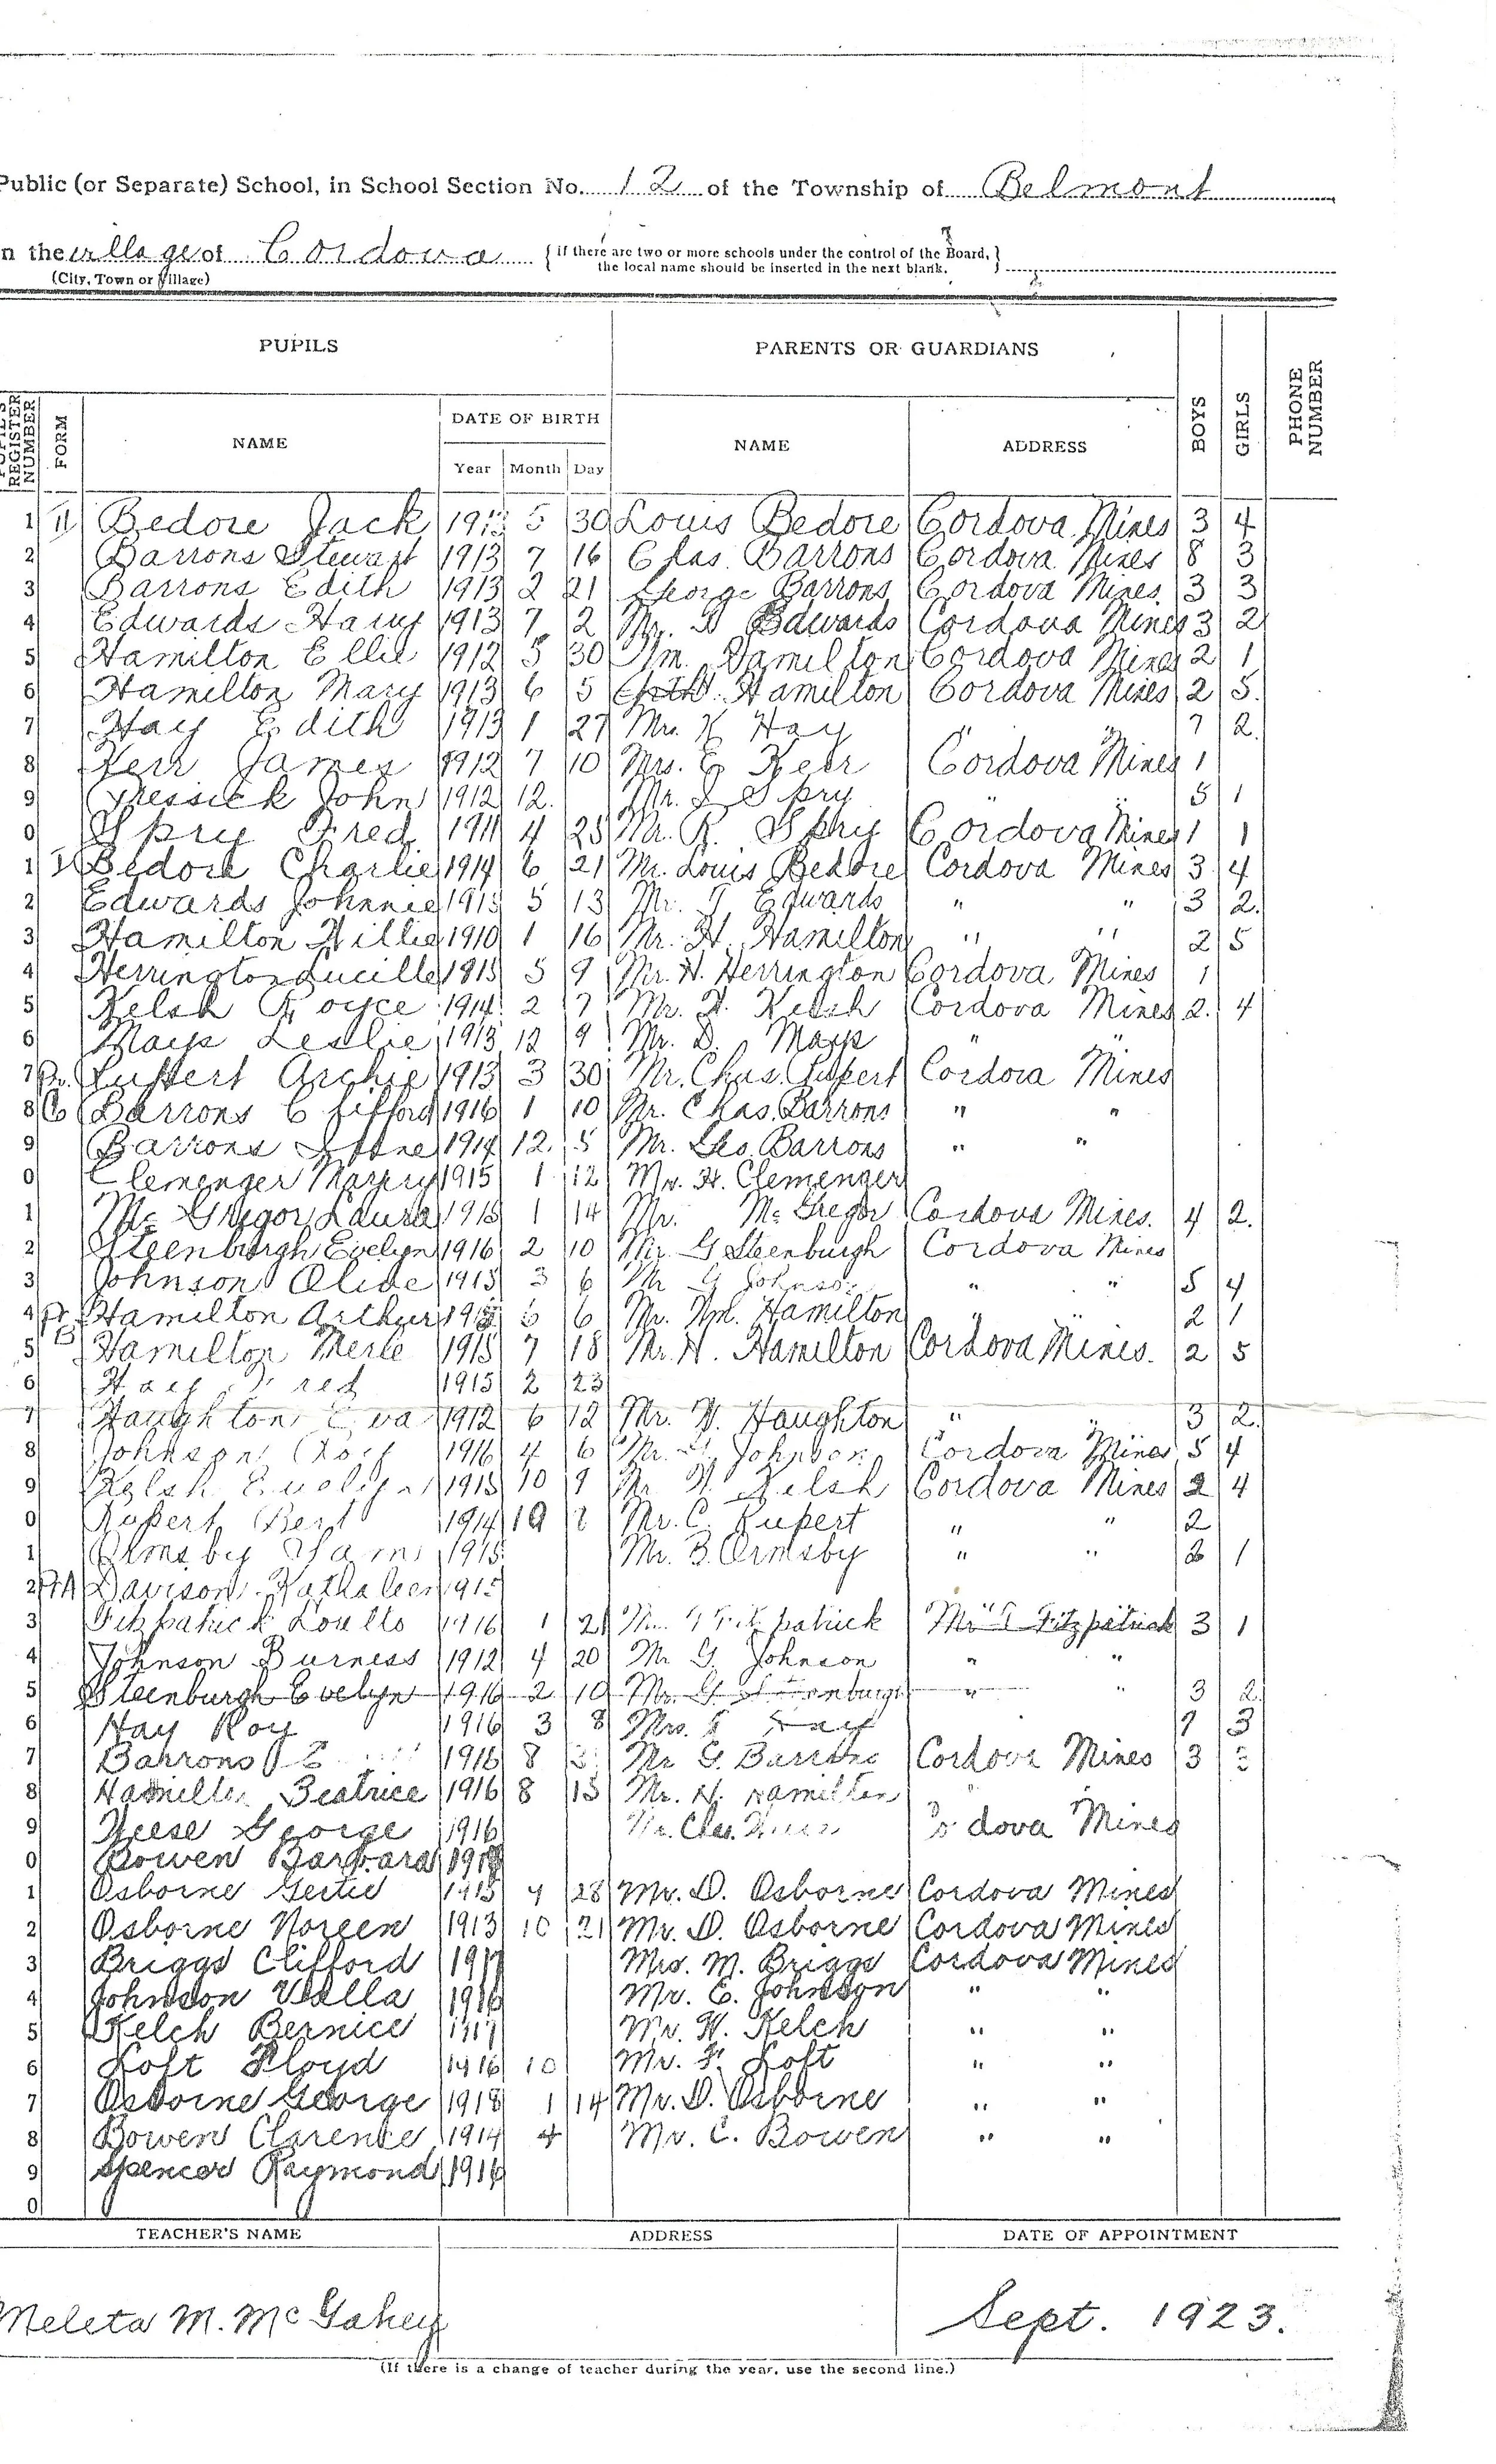 Public (or Separate) School, in School Section No. 12 of the Township of Belmont
n the village of Cordova { If there are two or more schools under the control of the Board, }
(City, Town or Village) the local name should be inserted in the next blank.
PUPILS PARENTS OR GUARDIANS
REGISTER NUMBER FORM NAME DATE OF BIRTH NAME ADDRESS BOYS GIRLS PHONE NUMBER
Year Month Day
1 II Bedore Jack 1913 5 30 Louis Bedore Cordova Mines 3 4
2 Barrons Stewart 1913 7 16 Chas. Barrons Cordova Mines 8 3
3 Barrons Edith 1913 2 21 George Barrons Cordova Mines 3 3
4 Edwards Harry 1913 7 2 Mr. Edwards Cordova Mines 3 2
5 Hamilton Ellie 1912 5 30 Wm. Hamilton Cordova Mines 2 1
6 Hamilton Mary 1913 6 5 Hamilton Cordova Mines 2 5
7 Hay Edith 1913 1 27 Mrs. Hay " " 7 2
8 Kerr James 1912 7 10 Mrs. Kerr Cordova Mines 1
9 John 1912 12 Mr. Spry " " 5 1
0 Spry Fred 1911 4 25 Mr. R. Spry Cordova Mines 1 1
1 Bedore Charlie 1914 6 21 Mr. Louis Bedore Cordova Mines 3 4
2 Edwards Johnnie 1915 5 13 Mr. Edwards " " 3 2
3 Hamilton Willie 1910 1 16 Mr. H. Hamilton " " 2 5
4 Herrington Lucille 1915 5 9 Mr. H. Herrington Cordova Mines 1
5 Kelsh Royce 1914 2 7 Mr. Kelsh Cordova Mines 2 4
6 Mays Leslie 1913 12 9 Mr. D. Mays " "
7 Pr. Rupert Archie 1913 3 30 Mr. Chas. Rupert Cordova Mines
8 Barrons Clifford 1916 1 10 Mr. Chas. Barrons " "
9 Barrons 1914 12 5 Mr. Geo Barrons " "
0 Clemenger 1915 1 12 Mr. H. Clemenger
1 Mc Gregor Laura 1915 1 14 Mr. Mc Gregor Cordova Mines. 4 2.
2 Steenburgh Evelyn 1916 2 10 Mr. G Steenburgh Cordova Mines
3 Johnson Olive 1915 3 6 Mr G Johnson " " 5 4
4 Pr Hamilton Arthur 6 Mr. Wm. Hamilton " " 2 1
5 B Hamilton Merle 1915 7 18 Mr. H. Hamilton Cordova Mines. 2 5
6 Hay Fred 1915 2 23
7 Haughton Eva 1912 6 12 Mr. W. Haughton " " 3 2.
8 Johnson 1916 4 6 Mr. G. Johnson Cordova Mines 5 4
9 Kelsh Evelyn 1915 10 9 Mr Kelsh Cordova Mines 2 4
0 Rupert Bert 1914 Mr. C. Rupert " " 2
1 Ormsby 1915 Mr. B. Ormsby " " 2 1
2 Davison Kathaleen 1915
3 Fitzpatrick 1916 1 21 Fitzpatrick Mr Fitzpatrick 3 1
4 Johnson Burness 1912 4 20 Mr G. Johnson " "
5 Steenburgh Evelyn 1916 2 10 Mr. G. Steenburgh " " 3 2
6 Hay Roy 1916 3 8 Mrs. Hay 7 3
7 Barrons 1916 8 Mr G. Barrons Cordova Mines 3
8 Hamilton Beatrice 1916 8 15 Mr. H. Hamilton "
9 George 1916 Mr. Chas. Cordova Mines
0 Bowen Barbara
1 Osborne Gertie 1915 4 28 Mr. D. Osborne Cordova Mines
2 Osborne Noreen 1913 10 21 Mr. D. Osborne Cordova Mines
3 Briggs Clifford 1917 Mrs. M. Briggs Cordova Mines
4 Johnson Vella 1916 Mr. C. Johnson " "
5 Kelch Bernice 1917 Mr. W. Kelch " "
6 Loft Floyd 1916 10 Mr. F. Loft " "
7 Osborne George 1918 1 14 Mr. D. Osborne " "
8 Bowen Clarence 1914 4 Mr. C. Bowen " "
9 Spencer Raymond 1916
0
TEACHER'S NAME ADDRESS DATE OF APPOINTMENT
Meleta M. McGahey Sept. 1923.
(If there is a change of teacher during the year, use the second line.)